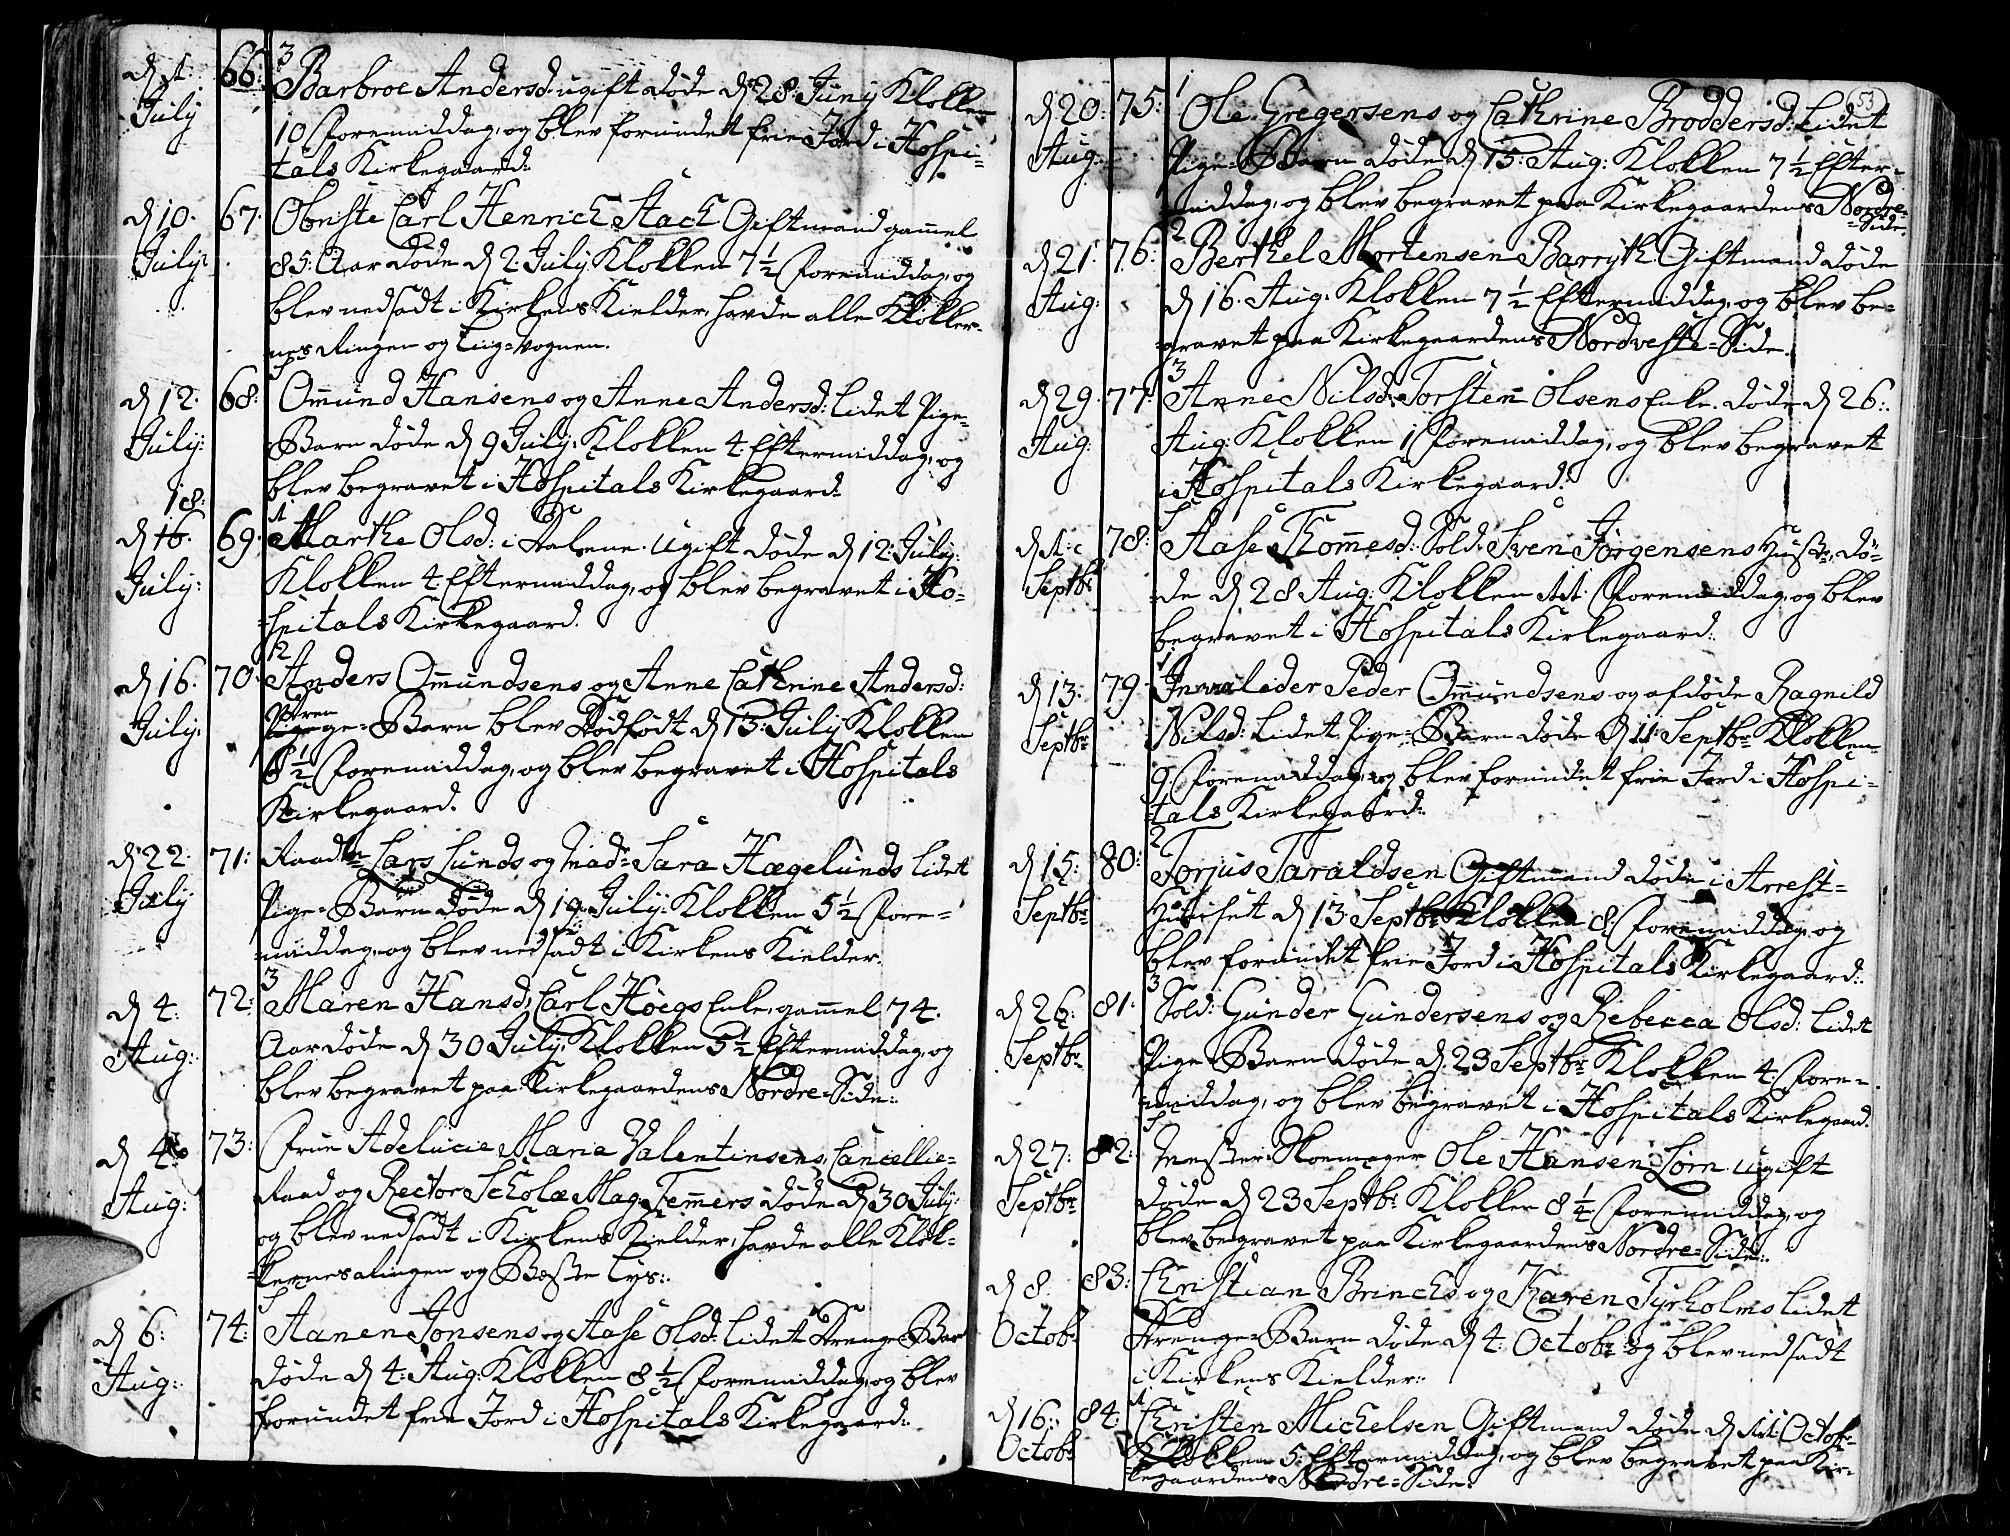 d. 1. July 66. 3
Barbroe Andersd: ugift døde d. 28. Juny Klokken
10 Foremiddag, og blev forundet frie Jord i Hospi=
tals Kirkegaard.
d. 10. July 67. Obriste Carl Henrich Stach Giftmand gammel
85. Aar døde d. 2. July Klokken 7 1/2 Foremiddag, og
blev nedsadt i Kirkens Kielder, havde alle Klokker=
nes Ringen og Liig=Vognen.
d. 12. July 68. Ommund Hansens og Anne Andersd: lidet Pige=
Barn døde d. 9 July: Klokken 4. Eftermiddag, og
blev begravet i Hospitals Kirkegaard.
18.
d. 16. July: 69. 11
Marthe Olsd: i Dalene. ugift døde d. 12. July:
Klokken 4. Eftermiddag, og blev begravet i Ho=
spitals Kirkegaard.
12
d. 16. July. 70. Anders Ommundsens og Anne Cathrine Andersd:
Pige=Barn blev Dødfødt d. 13. July Klokken
8 1/2 Foremiddag, og blev begravet i Hospitals
Kirkegaard.
d. 22. July 71. Raadm: Lars Lunds og Mad: Sara Hægelunds lidet
Pige=Barn døde d. 19. July: Klokken 5 1/2 Fore=
middag, og blev nedsadt i Kirkens Kielder.
3
d. 4. Aug: 72. Maren Hansd, Carl Høegs Enke, gammel 74.
Aar døde d. 30 July, Klokken 5 1/2 Eftermiddag, og
blev begravet paa Kirkegaardens Nordre=Side.
d. 4. Aug: 73. Frue Adelucie Maria Valentinsens, Cancellie=
Raad og Rector Scholæ Mag: Temmers døde d. 30 July.
og blev nedsadt i Kirkens Kielder, havde alle Klok=
kernes Ringen og Beste Lys:.
5
d. 6. Aug: 74. Aanen Jonsens og Aase Olsd: lidet Drenge=Barn
døde d. 4. Aug: Klokken 8 1/2 Foremiddag, og blev
forundet frie Jord i Hospitals Kirkegaard.
53
1
d. 20. Aug: 75. Ole Gregersens og Cathrine Broddersd: lidet
Pige=Barn døde d. 15. Aug: Klokken 7 1/2 Efter=
middag, og blev begravet paa Kirkegaardens Nordre=
Side.
2
d. 21. Aug: 76. Berthel Mortensen Barryth Giftmand døde
d. 16. Aug: Klokken 7 1/2 Eftermiddag, og blev be=
gravet paa Kirkegaardens Nordveste=Side.
3
d. 29. Aug: 77. Anne Nilsd: Torsten Olsens Enke. døde d. 26.
Aug: Klokken 1 Foremiddag, og blev begravet
i Hospitals Kirkegaard.
d. 1. Septbr 78. Aase Thommesd: Sold: Sven Jørgensens Hustr, dø=
de d. 28 Aug: Klokken 11. Foremiddag, og blev
begravet i Hospitals Kirkegaard.
1
d. 13. Septbr 79. Invalider Peder Ommundsens og afdøde Ragnild
Nilsd: lidet Pige=Barn døde d. 11. Septbr Klokken
9. Foremiddag, og blev forundet frie Jord i Hospi=
tals Kirkegaard.
2
d. 15. Septbr 80. Torjus Taraldsen Giftmand døde i Arrest=
Huuset d. 13. Septbr Klokken 8. Foremiddag, og
blev forundet frie Jord i Hospitals Kirkegaard.
3
d. 26. Septbr 81. Sold: Gunder Gundersens og Rebecca Olsd: lidet
Pige=Barn døde d. 23 Septbr Klokken 4. Fore=
middag, og blev begravet i Hospitals Kirkegaard.
d. 27. Septbr 82. Mester Skoemager Ole Hansen Lørn ugift
døde d. 23 Septbr Klokken 8 1/4 Foremiddag, og
blev begravet paa Kirkegaardens Nordre=Side.
d. 8. Octobr 83. Christian Brinchs og Karen Tyrholms lidet
Drenge=Barn døde d. 4. Octobr og blev nedsadt
i Kirkens Kielder.
11
d. 16. Octobr 84. Christen Michelsen Giftmand døde d. 11. Octobr
Klokken 5. Eftermiddag, og blev begravet paa Kir=
kegaardens Nordre=Side.